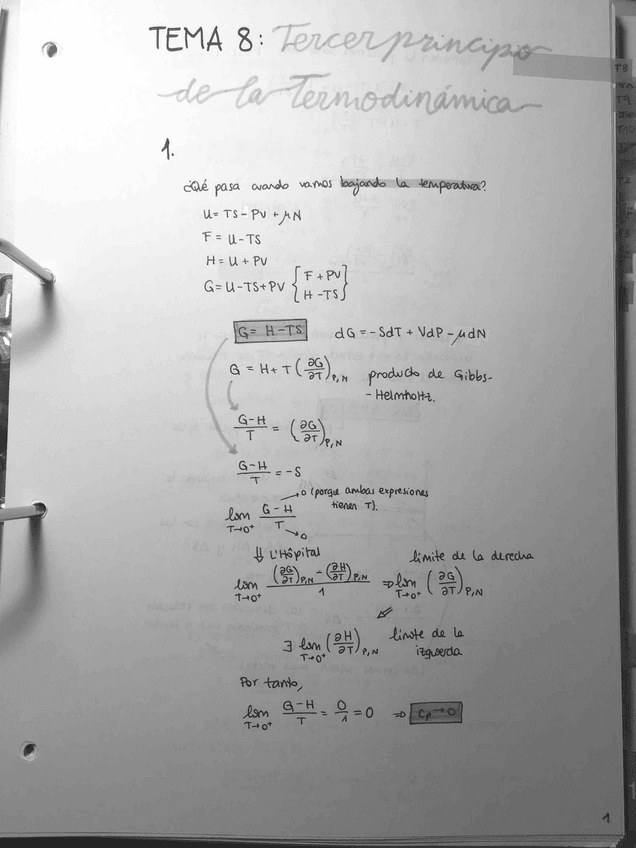 TEMA 8: Tercer principio
de la Termodinámica
T8
T9
1.
¿Qué pasa cuando vamos bajando la temperatura?
U = TS - PV + μN
F = U - TS
H = U + PV
G = U - TS + PV { F + PV
H - TS }
G = H - TS dG = -SdT + VdP - μdN
G = H + T (∂G/∂T)P,N producto de Gibbs-
- Helmholtz.
G-H/T = (∂G/∂T)P,N
G-H/T = -S
lím T→0⁺ G-H/T →0 (porque ambas expresiones
tienen T). →0
⇓ L'Hôpital límite de la derecha
lím T→0⁺ (∂G/∂T)P,N - (∂H/∂T)P,N / 1 ⇒ lím T→0⁺ (∂G/∂T)P,N
∃ lím T→0⁺ (∂H/∂T)P,N límite de la
izquierda
Por tanto,
lím T→0⁺ G-H/T = 0/1 = 0 ⇒ Cp→0
1